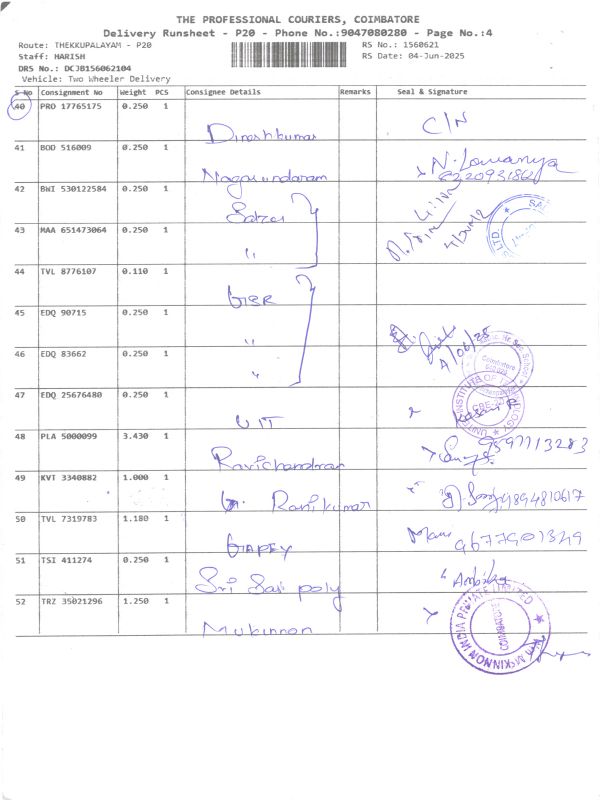 THE PROFESSIONAL COURIERS, COIMBATORE
Delivery Runsheet - P20 - Phone No.:9047080280 - Page No.:4
Route: THEKKUPALAYAM - P20 RS No.: 1560621
Staff: HARISH RS Date: 04-Jun-2025
DRS No.: DCJB156062104
Vehicle: Two Wheeler Delivery
S No Consignment No Weight PCS Consignee Details Remarks Seal & Signature
40 PRO 17765175 0.250 1
Dineshkumar C/N
41 BOD 516009 0.250 1
Nagasundaram N. Lowanya
42 BWI 530122584 0.250 1
43 MAA 651473064 0.250 1
"
44 TVL 8776107 0.110 1
GBR
45 EDQ 90715 0.250 1
"
46 EDQ 83662 0.250 1
"
47 EDQ 25676480 0.250 1
UIT
48 PLA 5000099 3.430 1
Ravichandran 9597713283
49 KVT 3340882 1.000 1
G. Ravikumar 9894810617
50 TVL 7319783 1.180 1
Mani 9677901349
51 TSI 411274 0.250 1
Sri Sai poly Ambika
52 TRZ 35021296 1.250 1
Mukinnon
COIMBATORE